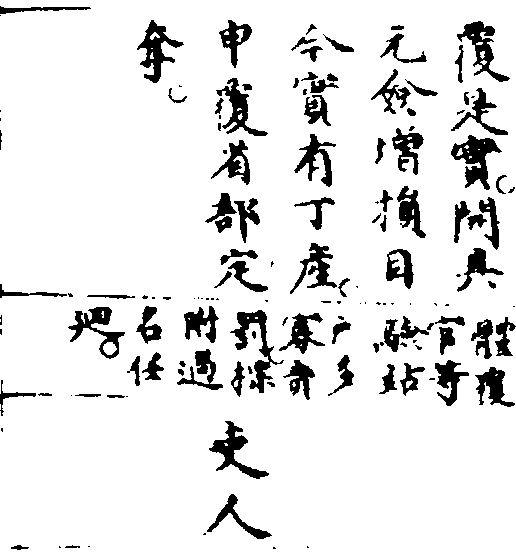 覆是實開具
元僉增損目
今實有丁産
申覆省部定
奪
體覆
官等
驗站
户多
寡
罰
附過
名任
廻
吏人